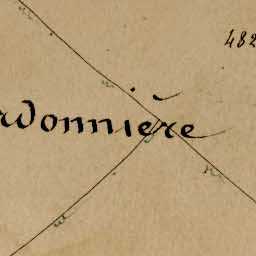 482
rdonnière